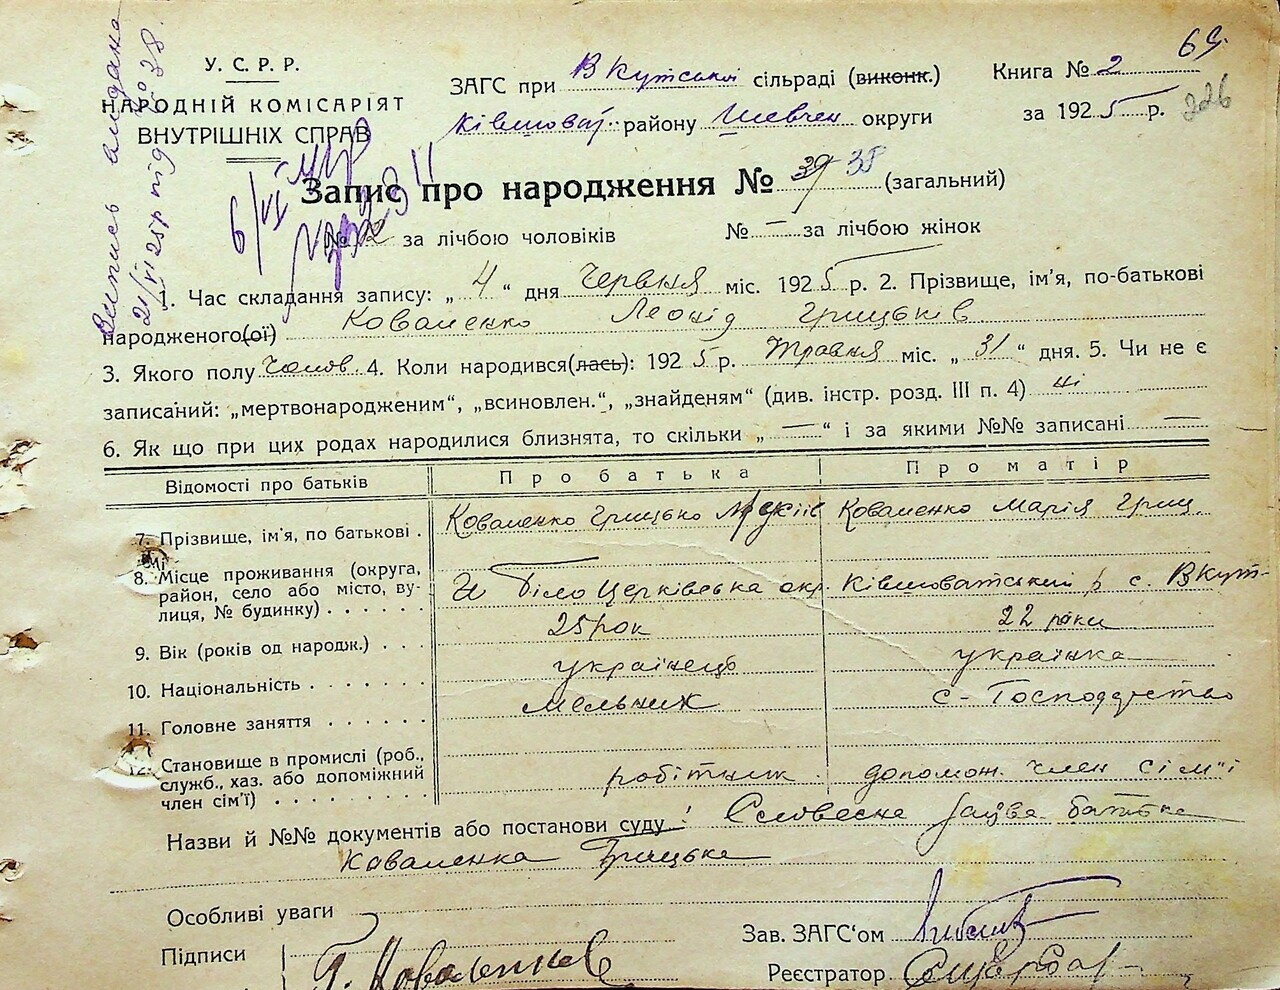 69.
226
У. С. Р. Р.
НАРОДНІЙ КОМІСАРІЯТ
ВНУТРІШНІХ СПРАВ
Випись видана
21/VI 25р під № 38.
6/VI
ЗАГС при В Кутській сільраді (виконк.) Книга № 2
Ківшоват. району Шевчен. округи за 1925 р.
Запис про народження № 39 38 (загальний)
№ 12 за лічбою чоловіків № — за лічбою жінок
1. Час складання запису: „ 4 “ дня Червня міс. 1925 р. 2. Прізвище, ім'я, по-батькові
народженого(ої) Коваленко Леонід Грицьків
3. Якого полу Чолов. 4. Коли народився(лась): 1925 р. Травня міс. „ 31 “ дня. 5. Чи не є
записаний: „мертвонародженим“, „всиновлен.“, „знайденям“ (див. інстр. розд. III п. 4) ні
6. Як що при цих родах народилися близнята, то скільки „ — “ і за якими №№ записані —
Відомості про батьків Про батька Про матір
7. Прізвище, ім'я, по батькові . Коваленко Грицько Коваленко Марія Гриц.
8. Місце проживання (округа,
район, село або місто, ву-
лиця, № будинку) . . . . . . Біло Церківська окр. Ківшоватський р с. В Кут-
9. Вік (років од народж.) . . . 25 рок 22 роки
10. Національність . . . . . . . українець українка
11. Головне заняття . . . . . . мельник с-Господарство
12. Становище в промислі (роб.,
служб., хаз. або допоміжний
член сім'ї) . . . . . . . . . робітник допомож. член сім'ї
Назви й №№ документів або постанови суду: Словесна заява батька
Коваленка Грицька
Особливі уваги
Підписи Г. Коваленко
Зав. ЗАГС'ом
Реєстратор